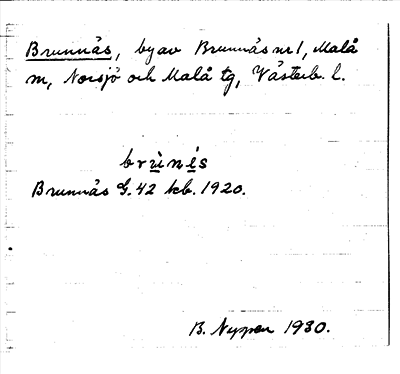 Brunnås, by av Brunnås nr 1, Malå
m, Norsjö och Malå tg, Västerb. l.
brùnè̱s
Brunnås G. 42 kb. 1920.
B. 1930.